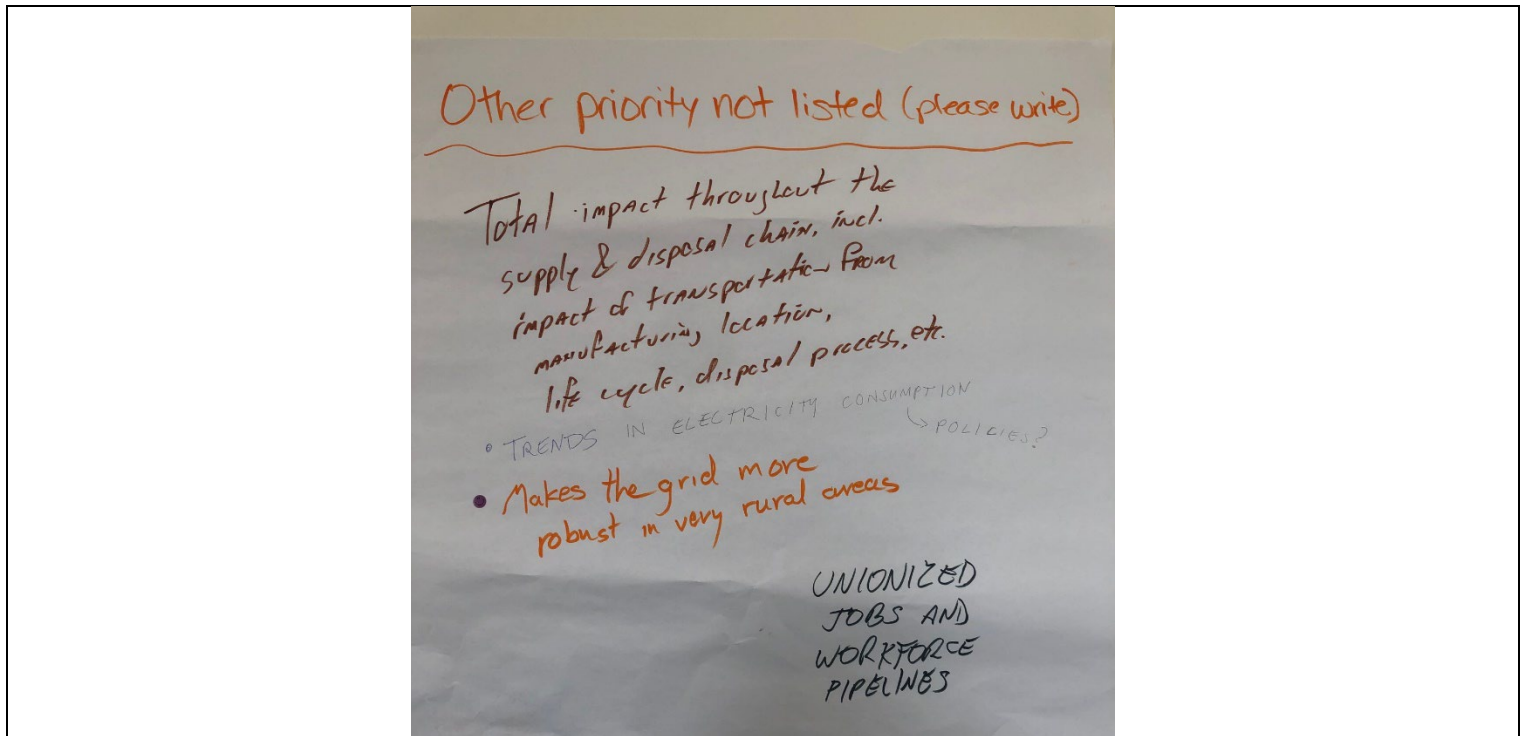 Other priority not listed (please write)
Total impact throughout the
supply & disposal chain, incl.
impact of transportation from
manufacturing location,
life cycle, disposal process, etc.
• TRENDS IN ELECTRICITY CONSUMPTION
↳ POLICIES?
• Makes the grid more
robust in very rural areas
UNIONIZED
JOBS AND
WORKFORCE
PIPELINES